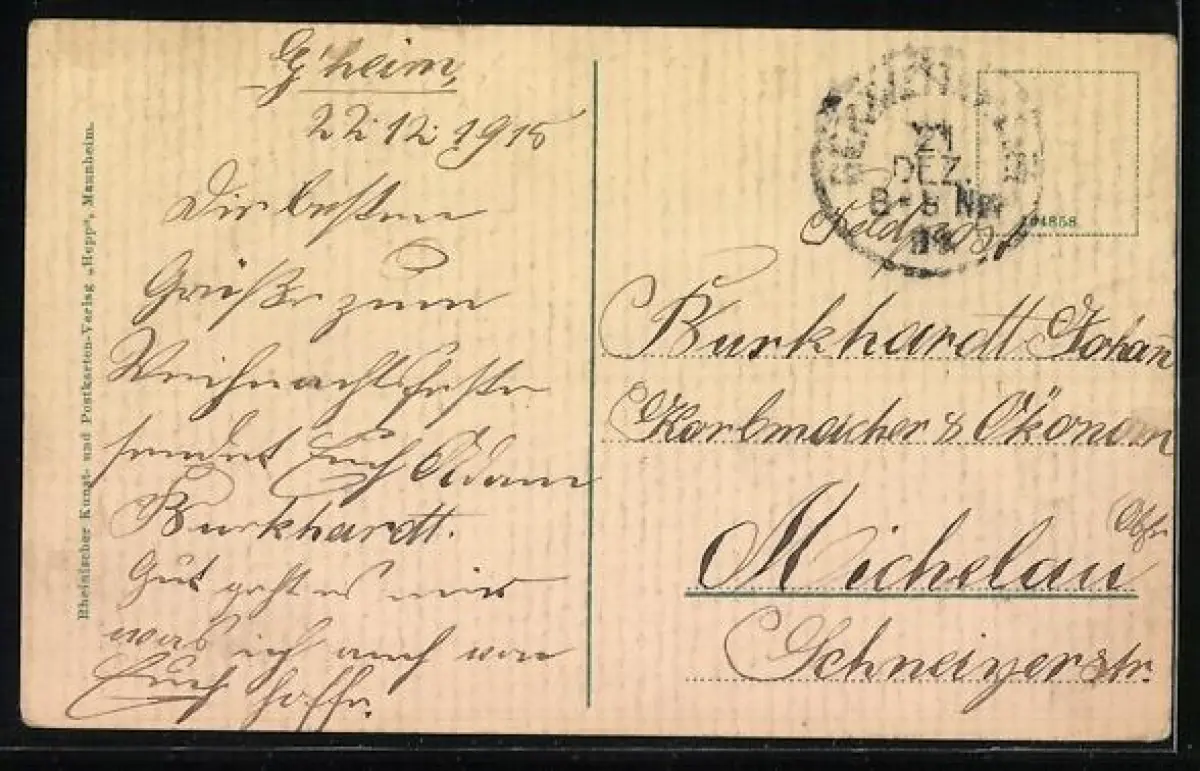 G'heim,
22.12.1915
Die besten
Grüße zum
Weihnachtsfeste
sendet Euch Adam
Burkhardt.
Gut geht es mir
was ich auch von
Euch hoffe.
Rheinischer Kunst- und Postkarten-Verlag „Hepp", Mannheim.
21
DEZ.
Feldpost
Burkhardt Johann
Korbmacher & Ökonom
Michelau
Obfr.
Schneizerstr.